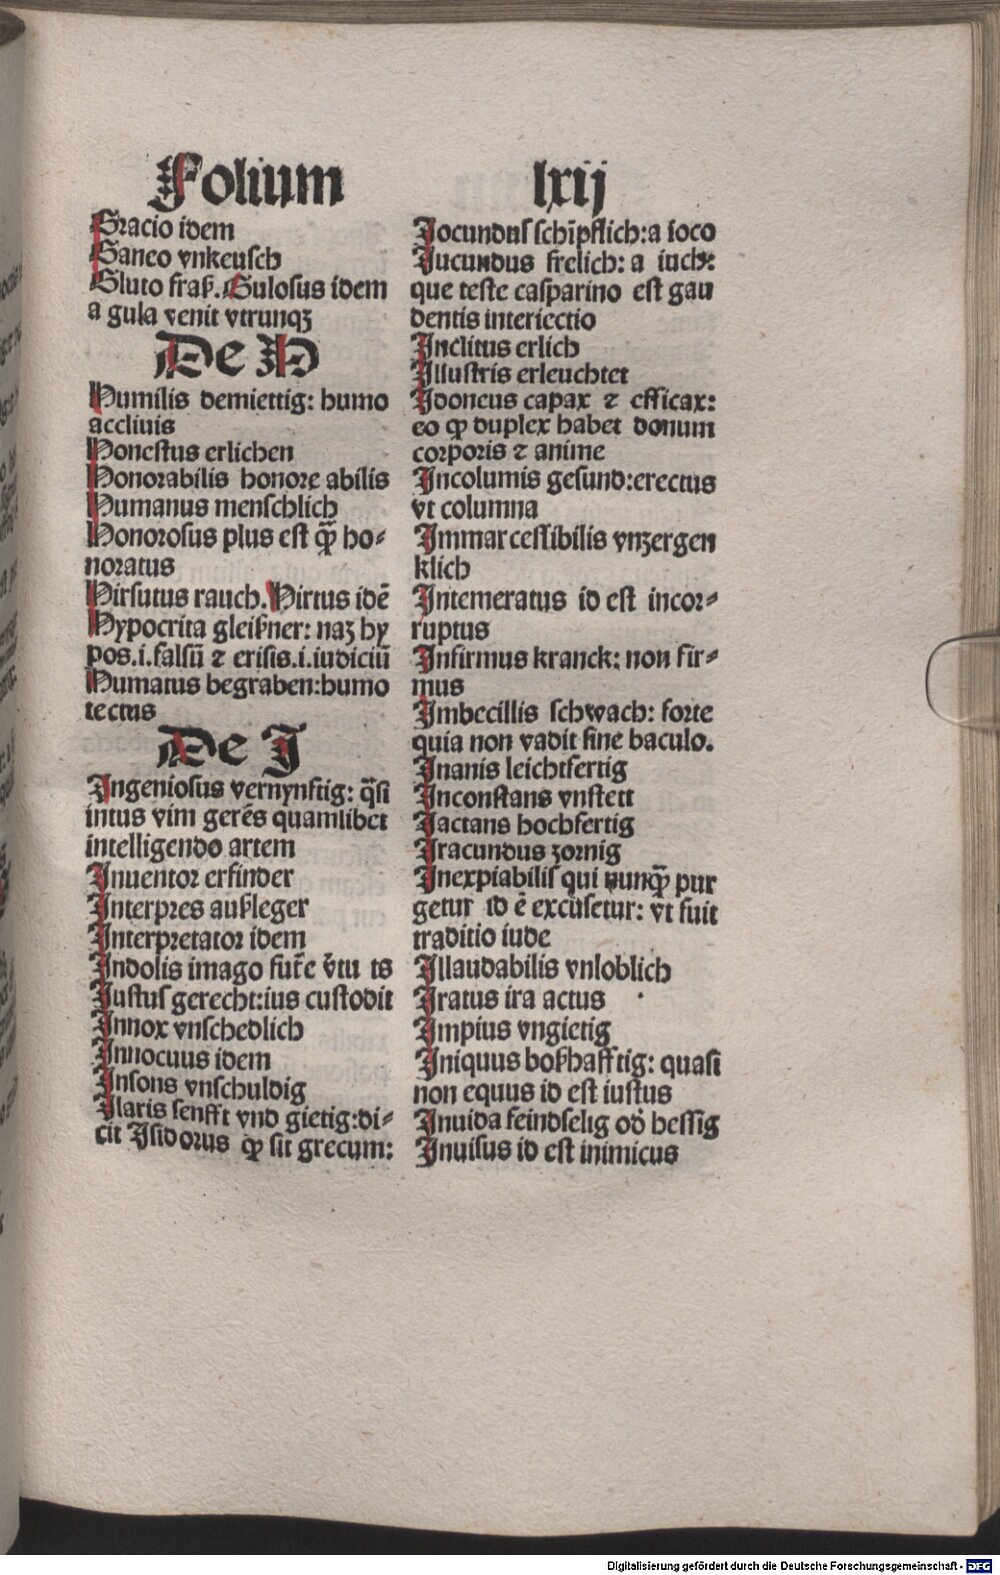 Folium lxij
Gracio idem
Ganeo vnkeusch
Gluto fraß. Gulosus idem
a gula venit vtrunqꝫ
De H
Humilis demiettig: humo
acclinis
Honestus erlichen
Honorabilis honore abilis
Humanus menschlich
Honorosus plus est qꝫ̃ ho⸗
noratus
Hirsutus rauch. Hirtus idē
Hypocrita gleißner: naʒ hy
pos.i.falsū ⁊ crisis.i.iudiciū
Humatus begraben:humo
tectus
De J
Ingeniosus vernynftig: q̄si
intus vim gerēs quamlibet
intelligendo artem
Inuentor erfinder
Interpres außleger
Interpretator idem
Indolis imago fut̄e v̄tu ts
Iustus gerecht:ius custodit
Innox vnschedlich
Innocuus idem
Insons vnschuldig
Ilaris senfft vnd gietig:di⸗
cit Isidorus ꝙ sit grecum:
Iocundus schīpflich:a ioco
Iucundus frelich: a iuch:
que teste casparino est gau
dentis interiectio
Inclitus erlich
Illustris erleuchtet
Idoneus capax ⁊ efficax:
eo ꝙ duplex habet donum
corporis ⁊ anime
Incolumis gesund:erectus
vt columna
Immarcessibilis vnzergen
klich
Intemeratus id est incor⸗
ruptus
Infirmus kranck: non fir⸗
mus
Imbecillis schwach: forte
quia non vadit sine baculo.
Inanis leichtfertig
Inconstans vnstett
Iactans hochfertig
Iracundus zornig
Inexpiabilis qui nunqꝫ̃ pur
getur id ē excusetur: vt fuit
traditio iude
Illaudabilis vnloblich
Iratus ira actus
Impius vngietig
Iniquus boßhafftig: quasi
non equus id est iustus
Inuida feindselig od̄ hessig
Inuisus id est inimicus
Digitalisierung gefördert durch die Deutsche Forschungsgemeinschaft - DFG